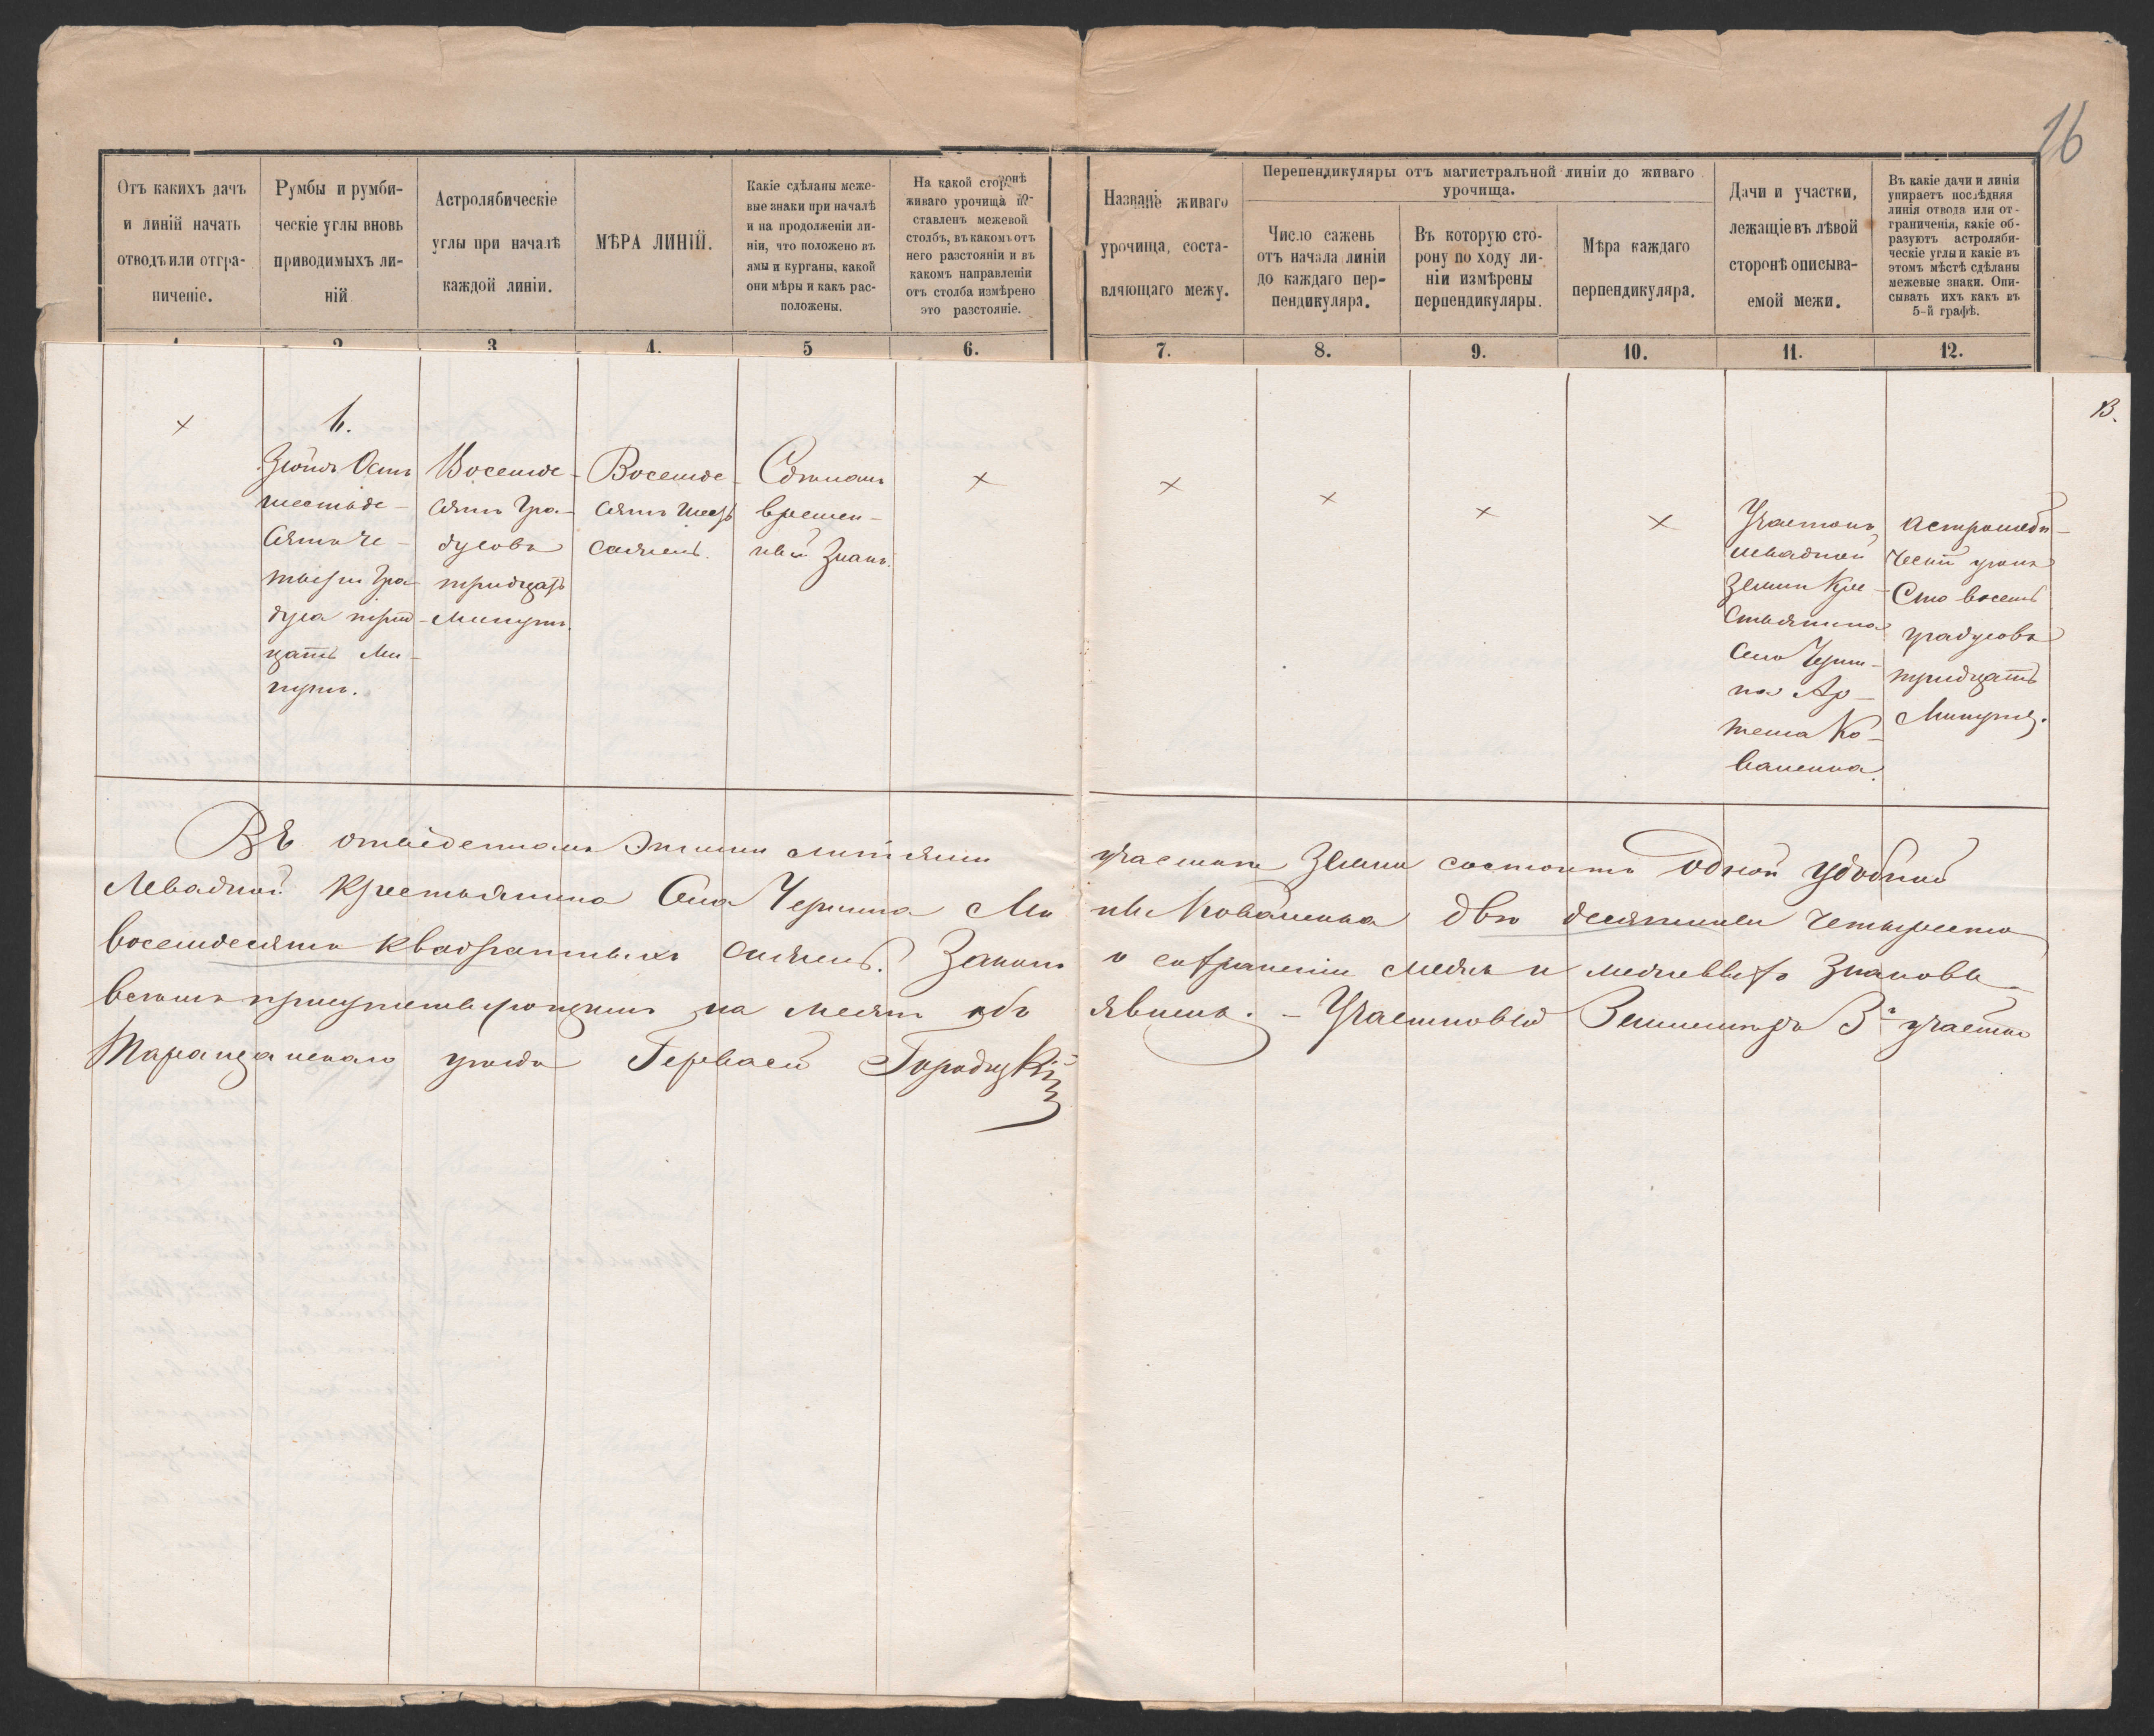 16
Отъ какихъ дачъ
и линій начать
отводъ или отгра-
ниченіе.
Румбы и румби-
ческіе углы вновь
приводимыхъ ли-
ній
Астролябическіе
углы при началѣ
каждой линіи.
МѢРА ЛИНІЙ.
Какіе сдѣланы меже-
вые знаки при началѣ
и на продолженіи ли-
ніи, что положено въ
ямы и курганы, какой
они мѣры и какъ рас-
положены.
На какой сторонѣ
живаго урочища по-
ставленъ межевой
столбъ, въ какомъ отъ
него разстояніи и въ
какомъ направленіи
отъ столба измѣрено
это разстояніе.
Названіе живаго
урочища, соста-
вляющаго межу.
Перепендикуляры отъ магистральной линіи до живаго
урочища.
Число сажень
отъ начала линіи
до каждаго пер-
пендикуляра.
Въ которую сто-
рону по ходу ли-
ніи измѣрены
перпендикуляры.
Мѣра каждаго
перпендикуляра.
Дачи и участки,
лежащіе въ лѣвой
сторонѣ описыва-
емой межи.
Въ какіе дачи и линіи
упираетъ послѣдняя
линія отвода или от-
граниченія, какіе об-
разуютъ астроляби-
ческіе углы и какіе въ
этомъ мѣстѣ сдѣланы
межевые знаки. Опи-
сывать ихъ какъ въ
5-й графѣ.
1. 2. 3. 4. 5 6. 7. 8. 9. 10. 11. 12.
13.
×
Зюйдъ Остъ
шестьде-
сять че-
тыри гра-
дуса трид-
цать ми-
нутъ.
Восемде-
сятъ гра-
дусовъ
тридцать
минутъ.
Восемде-
сятъ шесть
сажень.
Сдѣланъ
времен-
ный знакъ.
×
×
×
×
×
Участокъ
левадной
земли кре-
стьянина
села Черни-
на Ар-
тема Ко-
валенка.
астроляби-
ческій уголъ
сто восемь
градусовъ
тридцать
минутъ.
Въ отведенномъ этими линіями участкѣ земли состоитъ одной удобной
левадной крестьянина села Чернина Ми ны Коваленка двѣ десятины четыреста
восемдесятъ квадратныхъ сажень. Законъ о сохраненіи межъ и межевыхъ знаковъ
всѣмъ присутствующимъ на межѣ объ явленъ. – Участковый Землемѣръ 3го участка
Таращанскаго уѣзда Гервасій Городцкій